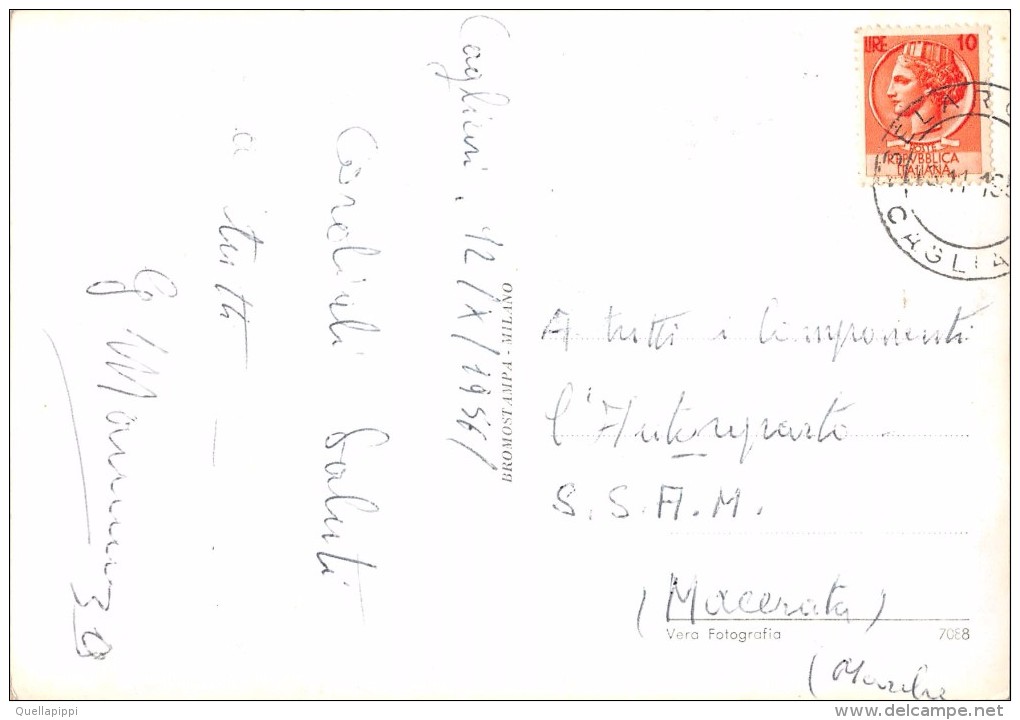 Cagliari, 12/X/1956/
Cordiali Saluti
a tutti
BROMOSTAMPA - MILANO
LIRE 10
POSTE
REPVBBLICA
ITALIANA
CAGLIA
A tutti i componenti
l'Autoreparto
S.S.A.M.
(Macerata)
Vera Fotografia 7088
(Marche
Quellapippi
delcampe.net